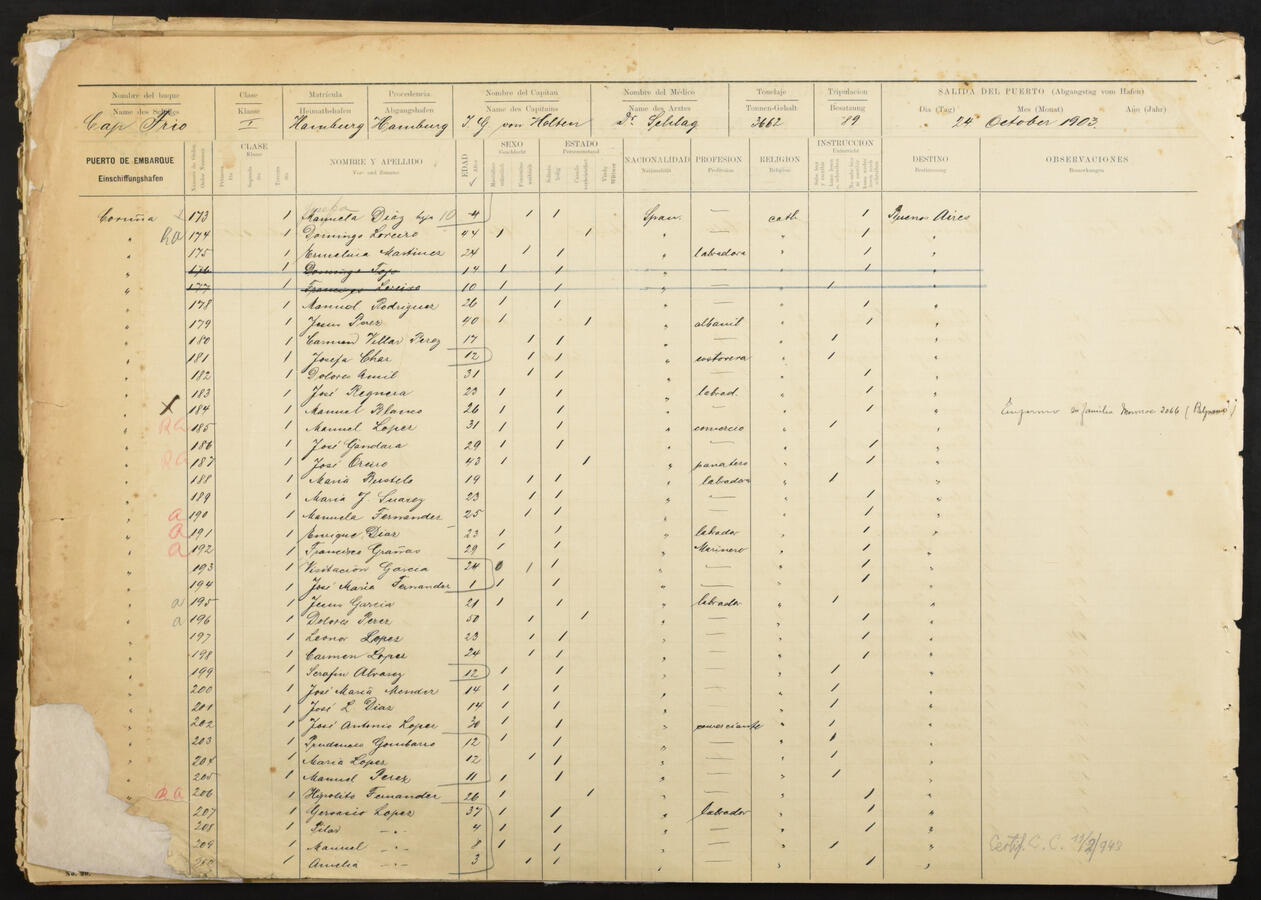 Nombre del buque Clase Matrícula Procedencia Nombre del Capitan Nombre del Médico Tonelaje Tripulacion SALIDA DEL PUERTO (Abgangstag vom Hafen)
Name des Schiffes Klasse Heimathshafen Abgangshafen Name des Capitains Name des Arztes Tonnen-Gehalt Besatzung Dia (Tag) Mes (Monat) Año (Jahr)
Cap Frio I Hamburg Hamburg J. G von Holten Dr. Schlag 3662 89 24 October 1903.
PUERTO DE EMBARQUE Einschiffungshafen CLASE Klasse NOMBRE Y APELLIDO Vor- und Zuname EDAD SEXO Geschlecht ESTADO Personenstand NACIONALIDAD Nationalität PROFESION Profession RELIGION Religion INSTRUCCION Unterricht DESTINO Bestimmung OBSERVACIONES Bemerkungen
Coruña 173 1 Manuela Diaz hija 10 4 1 1 Span. — cath. 1 Buenos Aires
" Ra 174 1 Domingo Loreiro 44 1 1 " — " 1 "
" 175 1 Ermelina Martinez 24 1 1 " labradora " 1 "
" 176 1 Domingo Tojo 14 1 1 " — " 1 "
" 177 1 Francisco Loreiro 10 1 1 " — " 1 "
" 178 1 Manuel Rodriguez 26 1 1 " — " 1 "
" 179 1 Jesus Perez 40 1 1 " albanil " 1 "
" 180 1 Carmen Villar Perez 17 1 1 " — " 1 "
" 181 1 Josefa Char 12 1 1 " costorera " 1 "
" 182 1 Dolores Amil 31 1 1 " — " 1 "
" 183 1 José Reguera 23 1 1 " labrad. " 1 "
" X 184 1 Manuel Blanco 26 1 1 " — " 1 " Enfermo familia 2066
" Ra 185 1 Manuel Lopez 31 1 1 " comercio " 1 "
" 186 1 José Gandara 29 1 1 " — " 1 "
" Ra 187 1 José Oreiro 43 1 1 " panatero " 1 "
" 188 1 Maria Bustelo 19 1 1 " labradora " 1 "
" 189 1 Maria J. Suarez 23 1 1 " — " 1 "
" a 190 1 Manuela Fernandez 25 1 1 " — " 1 "
" a 191 1 Enrique Diaz 23 1 1 " labrador " 1 "
" a 192 1 Francisco Grañas 29 1 1 " Marinero " 1 "
" 193 1 Visitacion Garcia 24 0 1 1 " — " 1 "
" 194 1 José Maria Fernandez 1 1 1 " — " 1 "
" a 195 1 Jesus Garcia 21 1 1 " labrador " 1 "
" a 196 1 Dolores Perez 50 1 1 " — " 1 "
" 197 1 Leonor Lopez 23 1 1 " — " 1 "
" 198 1 Carmen Lopez 24 1 1 " — " 1 "
" 199 1 Serafin Alvarez 12 1 1 " — " 1 "
" 200 1 José Maria Mendez 14 1 1 " — " 1 "
" 201 1 José L. Diaz 14 1 1 " — " 1 "
" 202 1 José Antonio Lopez 30 1 1 " comerciante " 1 "
" 203 1 Prudencio Gombarro 12 1 1 " — " 1 "
" 204 1 Maria Lopez 12 1 1 " — " 1 "
" 205 1 Manuel Perez 11 1 1 " — " 1 "
" Ra 206 1 Hipolito Fernandez 26 1 1 " — " 1 "
" 207 1 Gervasio Lopez 37 1 1 " labrador " 1 "
208 1 Pilar — " — 4 1 1 " — " 1 "
209 1 Manuel — " — 8 1 1 " — " 1 " Certif. C. C. 11/2/943
210 1 Amelia — " — 3 1 1 " — " 1 "
No. 20.